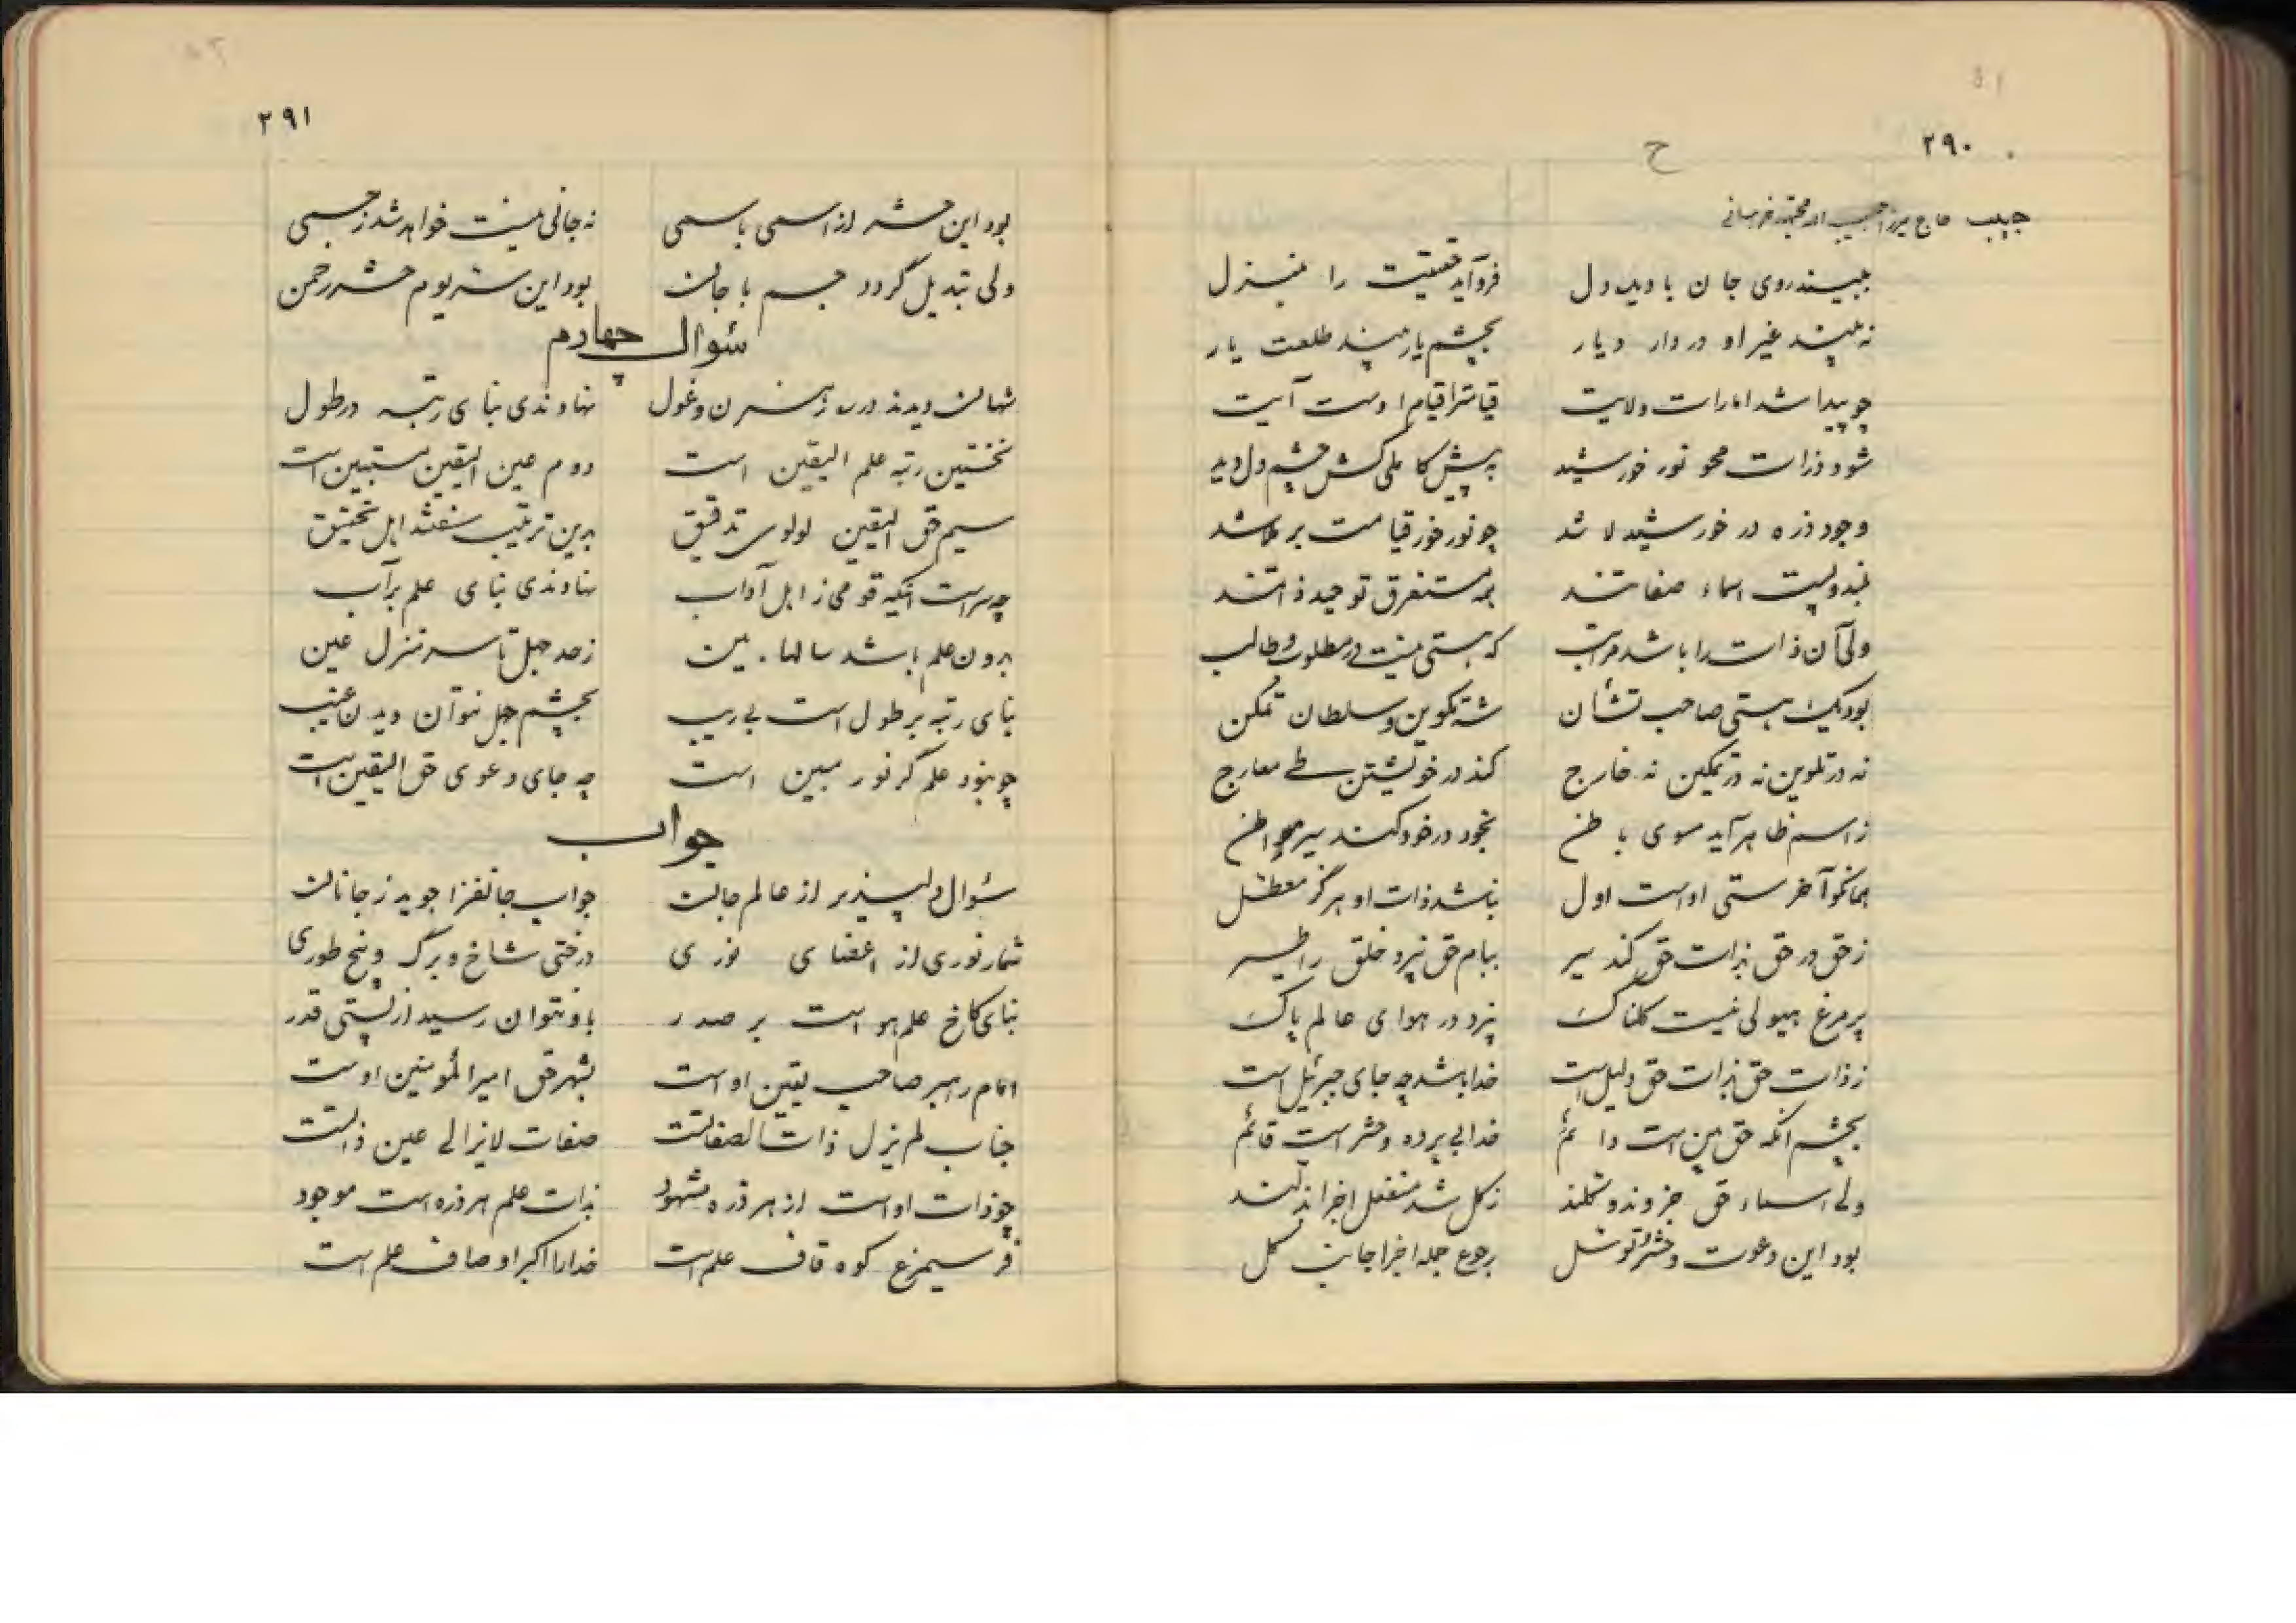 ۲۹۰
ح
حبیب حاج میرزا حبیب الله مجتهد خراسانی
ببیند روی جان با دیده دل فرود آید حقیقت را بمنزل
نه بیند غیر او در دار و دیار بچشم یار بیند طلعت یار
چو پیدا شد امارات ولایت قیامترا قیام اوست آیت
شود ذرات محو نور خورشید به پیش کاملی کش چشم دل دید
وجود ذره در خورشید لا شد چو نور خور قیامت بر ملا شد
بلند و پست اسماء صفاتند همه مستغرق توحید ذاتند
ولی آن ذات را باشد مراتب که هستی نیست در مطلوب و طالب
بود یک هستی صاحب تشأن شه تکوین و سلطان تمکن
نه در تلوین نه در تمکین نه خارج کند در خویشتن طی معارج
ز اسم ظاهر آید سوی باطن بخود در خود کند سیر مواطن
همانکو آخرستی اوست اول نباشد ذات او هرگز معطل
ز حق در حق بذات حق کند سیر ببام حق نپرد خلق را طیر
پر مرغ هیولی نیست کلناک نپرد در هوای عالم پاک
ز ذات حق بذات حق دلیل است خدا باشد چه جای جبرئیل است
بچشم آنکه حق بین است دائم خدا بی پرده و حشر است قائم
ولی اسماء حق جزوند و کلند ز کل شد منفعل اجزا
بود این دعوت و حشر توسل رجوع جمله اجزا جانب کل
۲۹۱
بود این حشر از اسمی باسمی نه جانی نیست خواهد شد ز جسمی
ولی تبدیل گردد جسم با جان بود این سر یوم حشر رحمن
سئوال چهارم
نهادندی بنای رتبه در طول
نخستین رتبه علم الیقین است دوم عین الیقین مستبین است
سیم حق الیقین اولوی تدقیق بدین ترتیب گفتند اهل تحقیق
چه سر است آنکه قومی ز اهل آداب نهادندی بنای علم بر آب
برون علم باشد سالها بین ز حد جهل تا سر منزل عین
بنای رتبه بر طول است بی ریب بچشم جهل نتوان دیدن غیب
چو نبود علم گر نور مبین است چه جای دعوی حق الیقین است
جواب
سئوال دلپذیر از عالم جان جواب جانفزا جوید ز جانان
شمار نوری از اعضای نوری درختی شاخ و برگ و بیخ طوری
بنای کاخ علم هو است بر صدر باو نتوان رسید از پستی قدر
امام راهبر صاحب یقین اوست بشهر حق امیرالمؤمنین اوست
جناب لم یزل ذات الصفاتست صفات لایزالی عین ذاتست
چو ذات اوست از هر ذره مشهود بذات علم هر ذره است موجود
فر سیمرغ کوه قاف علم است خدا را اکبر اوصاف علم است